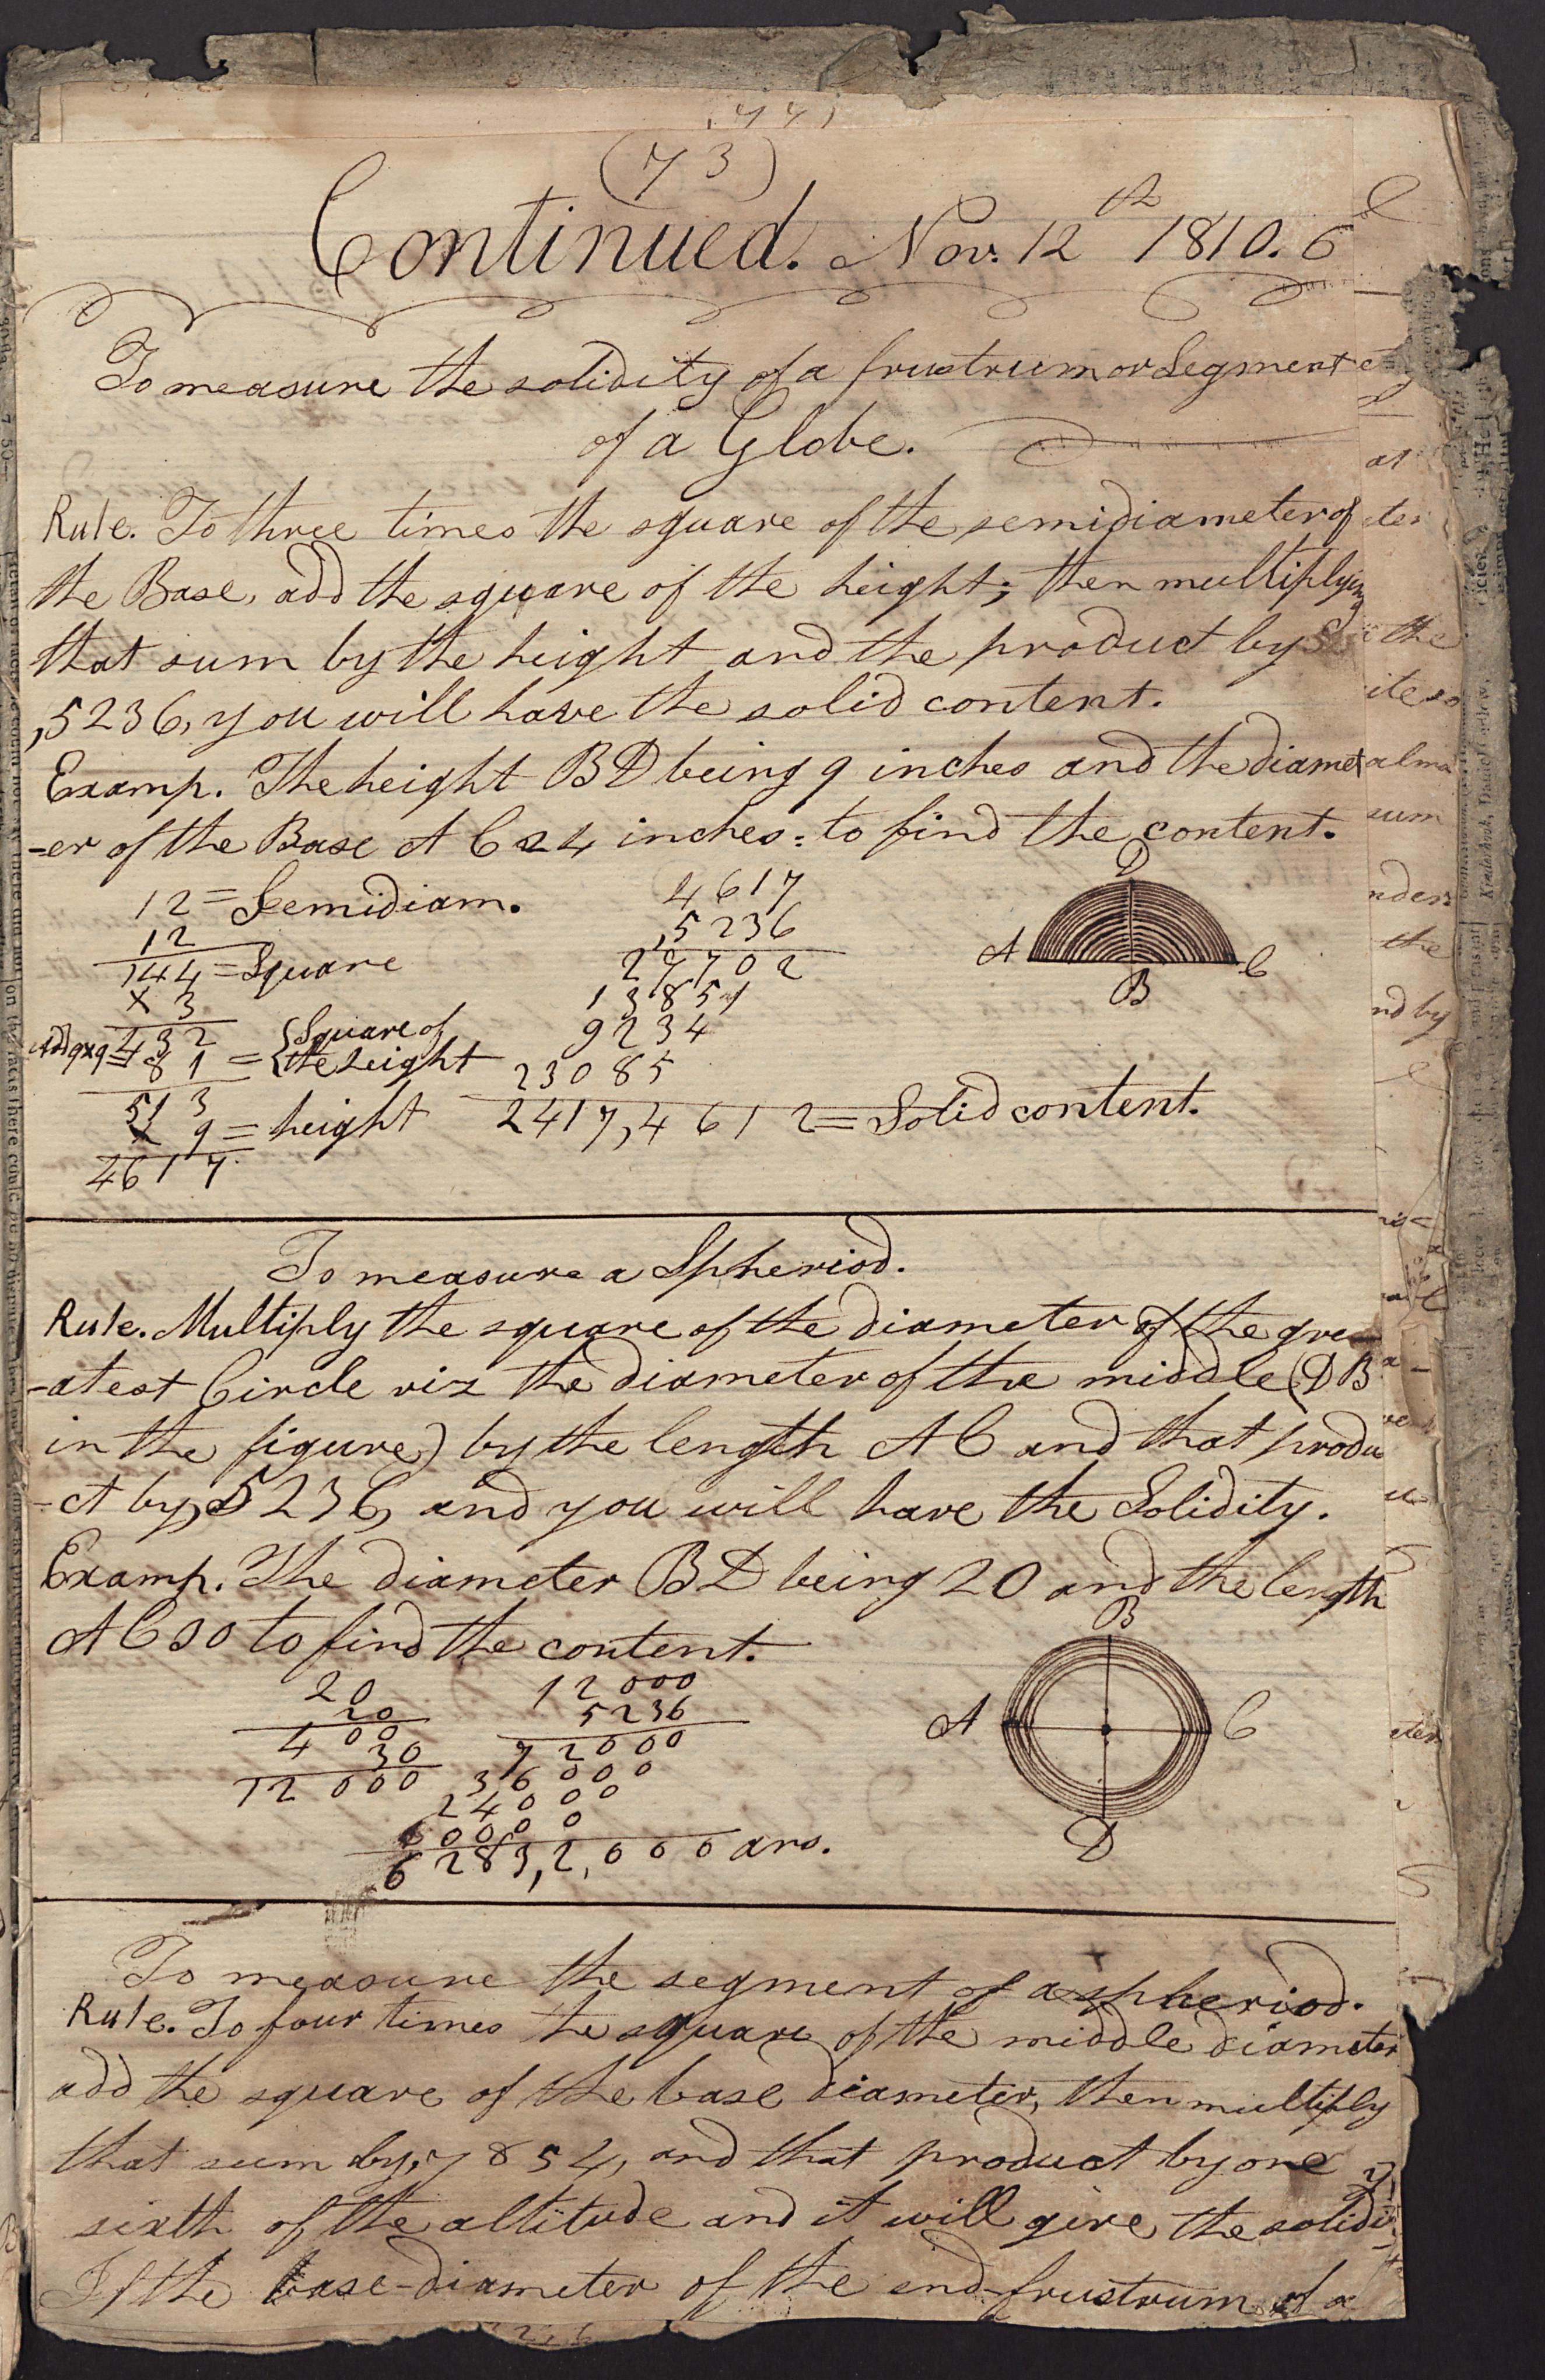 (73)
Continued. Nov. 12th 1810. 6
To measure the solidity of a frustrum or Segment
of a Globe.
Rule. To three times the square of the semidiameter of
the Base, add the square of the height; then multiplying
that sum by the height and the product by
,5236, you will have the solid content.
Examp. The height BD being 9 inches and the diamet
-er of the Base AC 24 inches: to find the content.
12 = Semidiam.
12
144 = Square
× 3
432
Add 9×9= 81 = {Square of
the height
513
× 9 = height
4617
4617
,5236
27702
13851
9234
23085
2417,4612 = Solid content.
D
A
C
B
To measure a Spheriod.
Rule. Multiply the square of the diameter of the gre
-atest Circle viz the diameter of the middle (DB
in the figure) by the length AC and that produ
-ct by ,5236, and you will have the Solidity.
Examp. The diameter BD being 20 and the length
AC 30 to find the content.
20
20
400
30
12000
12000
5236
72000
36000
24000
60000
6283,2,000 ans.
B
A
C
D
To measure the segment of a spheriod.
Rule. To four times the square of the middle diameter
add the square of the base diameter, then multiply
that sum by ,7854, and that product by one
sixth of the altitude and it will give the solidi
If the base-diameter of the end-frustrum of a
at
ter
the
ite so
alma
sum
nder
the
nd by